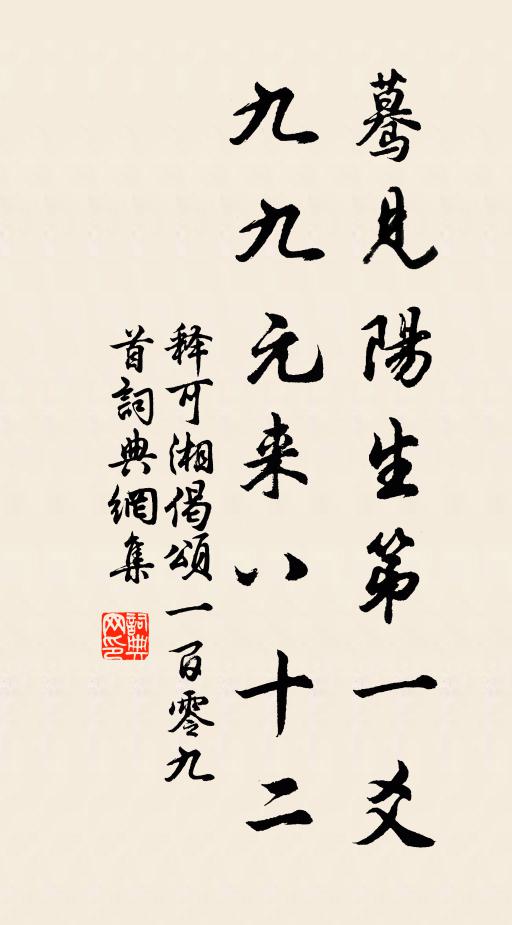 蓦见陽生第一爻
九九元来八十二
释可湘偈頌一百零九
首詞典網集
詞典网印